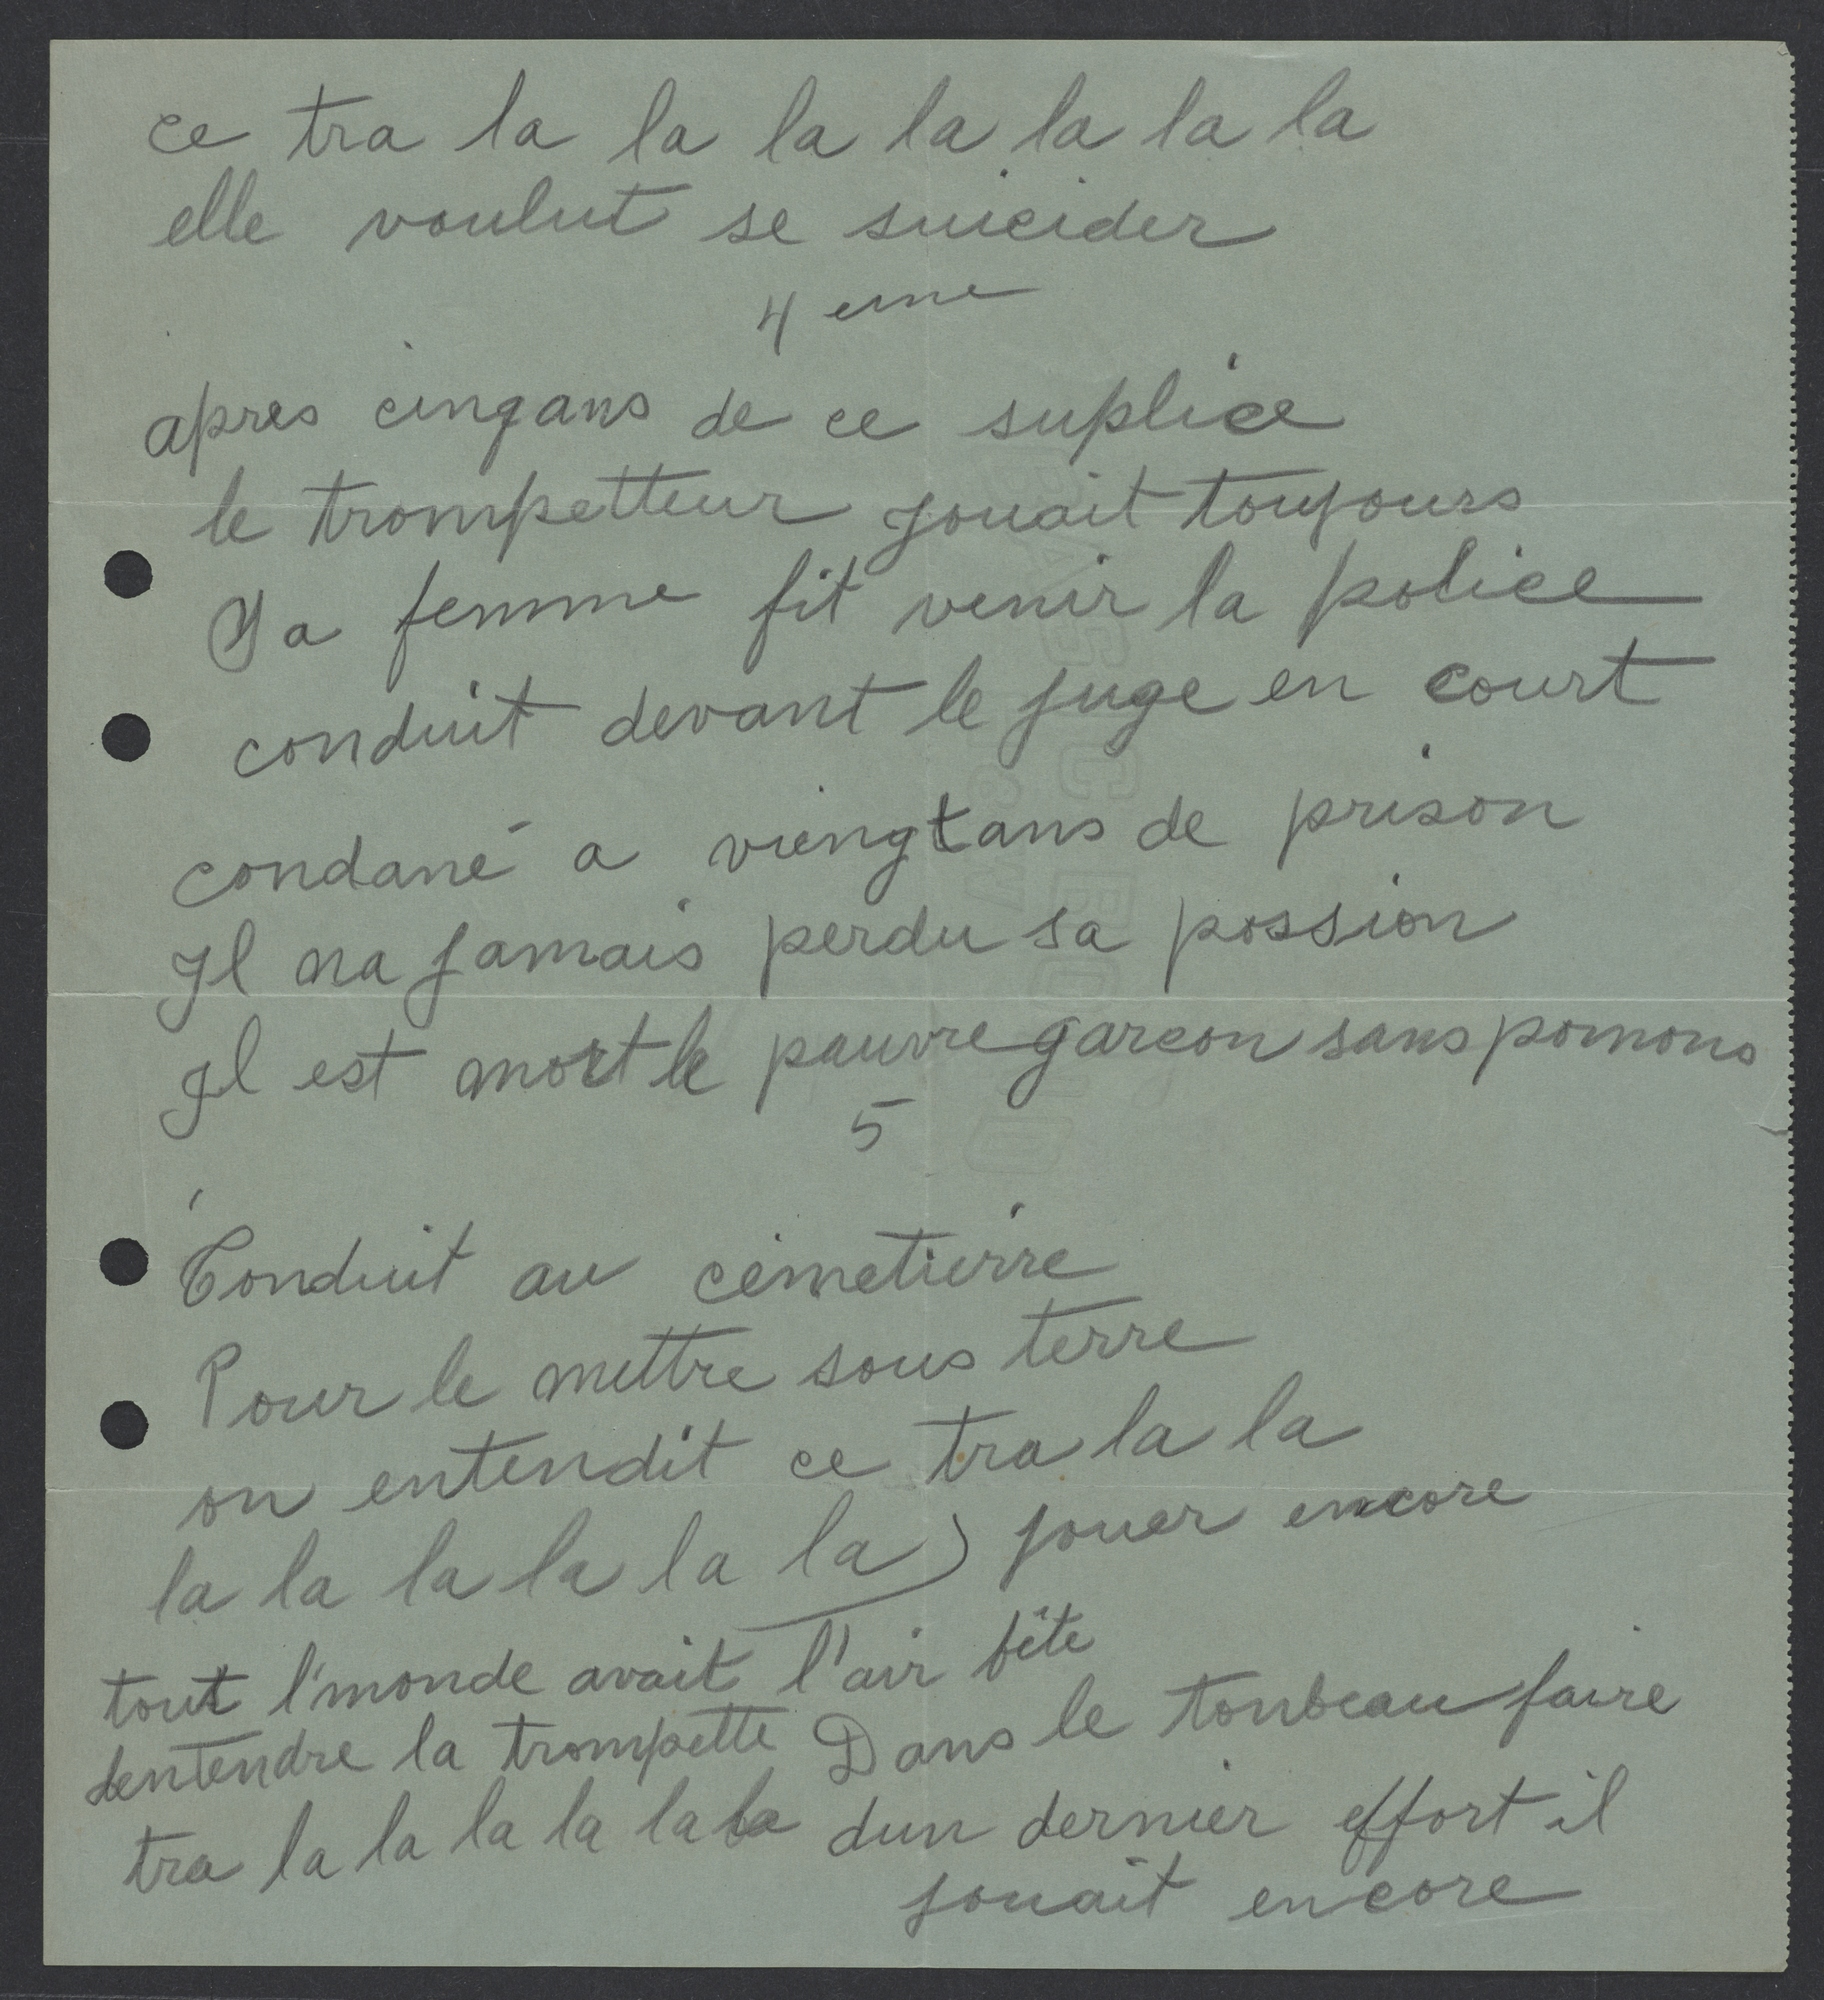 ce tra la la la la la la la
elle voulut se suicider
4 eme
apres cinqans de ce suplice
le trompetteur jouait toujours
Sa femme fit venir la police
conduit devant le juge en court
condané a viengtans de prison
Il na jamais perdu sa possion
Il est mort le pauvre garcon sans pomons
5
Conduit au cimetierre
Pour le mettre sous terre
on entendit ce tra la la
la la la la la la) jouer encore
tout l'monde avait l'air bête
dentendre la trompette Dans le tonbeau faire
tra la la la la la la dun dernier effort il
jouait encore